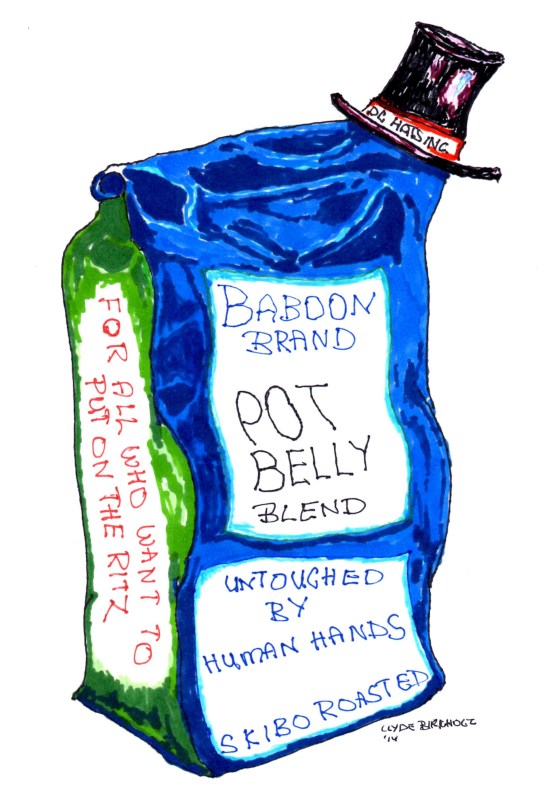 BABOON
BRAND
POT
BELLY
BLEND
UNTOUCHED
BY
HUMAN HANDS
SKIBO ROASTED
FOR ALL WHO WANT TO
PUT ON THE RITZ
CLYDE
'14